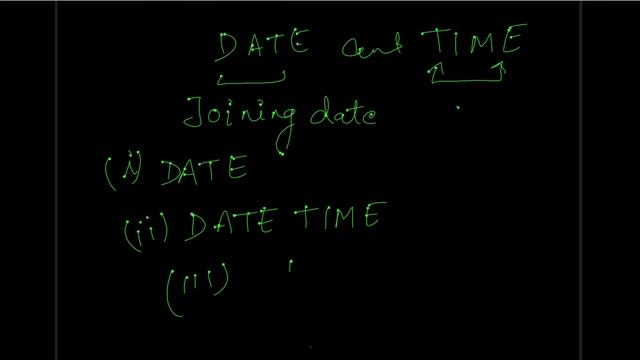 DATE and TIME
Joining date
(i) DATE
(ii) DATE TIME
(iii)